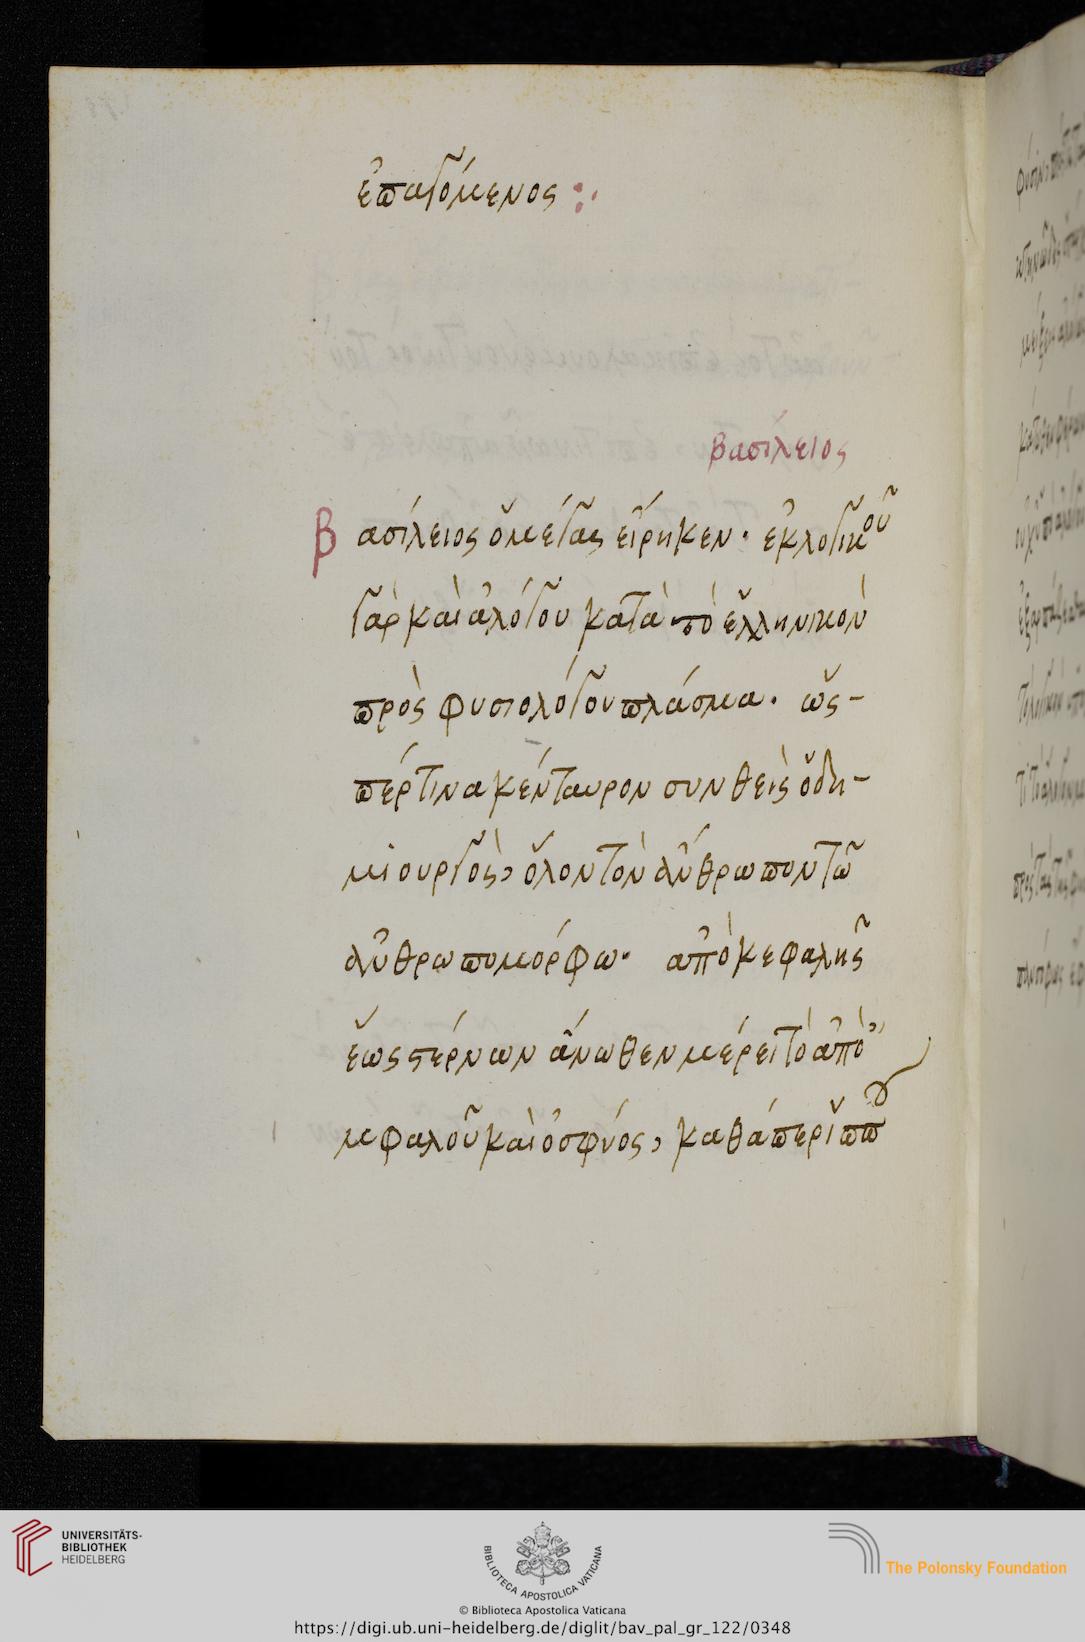 ἐπαγόμενος :·
βασίλειος
Βασίλειος ὁ μέγας εἴρηκεν · ἐκ λογικοῦ
γὰρ καὶ ἀλόγου κατὰ τὸ ἑλληνικὸν
πρὸς φυσιολόγου πλάσμα · ὥς-
πέρ τινα κένταυρον συνθεὶς ὁ δη-
μιουργὸς, ὅλον τὸν ἄνθρωπον τῶ
ἀνθρωπομόρφω · ἀπὸ κεφαλῆς
ἕως στέρνων ἄνωθεν μέρει τὸ ἀπὸ
μφαλοῦ καὶ ὀσφύος, καθάπερ ἵππ
UNIVERSITÄTS-
BIBLIOTHEK
HEIDELBERG
BIBLIOTECA APOSTOLICA VATICANA
The Polonsky Foundation
© Biblioteca Apostolica Vaticana
https://digi.ub.uni-heidelberg.de/diglit/bav_pal_gr_122/0348